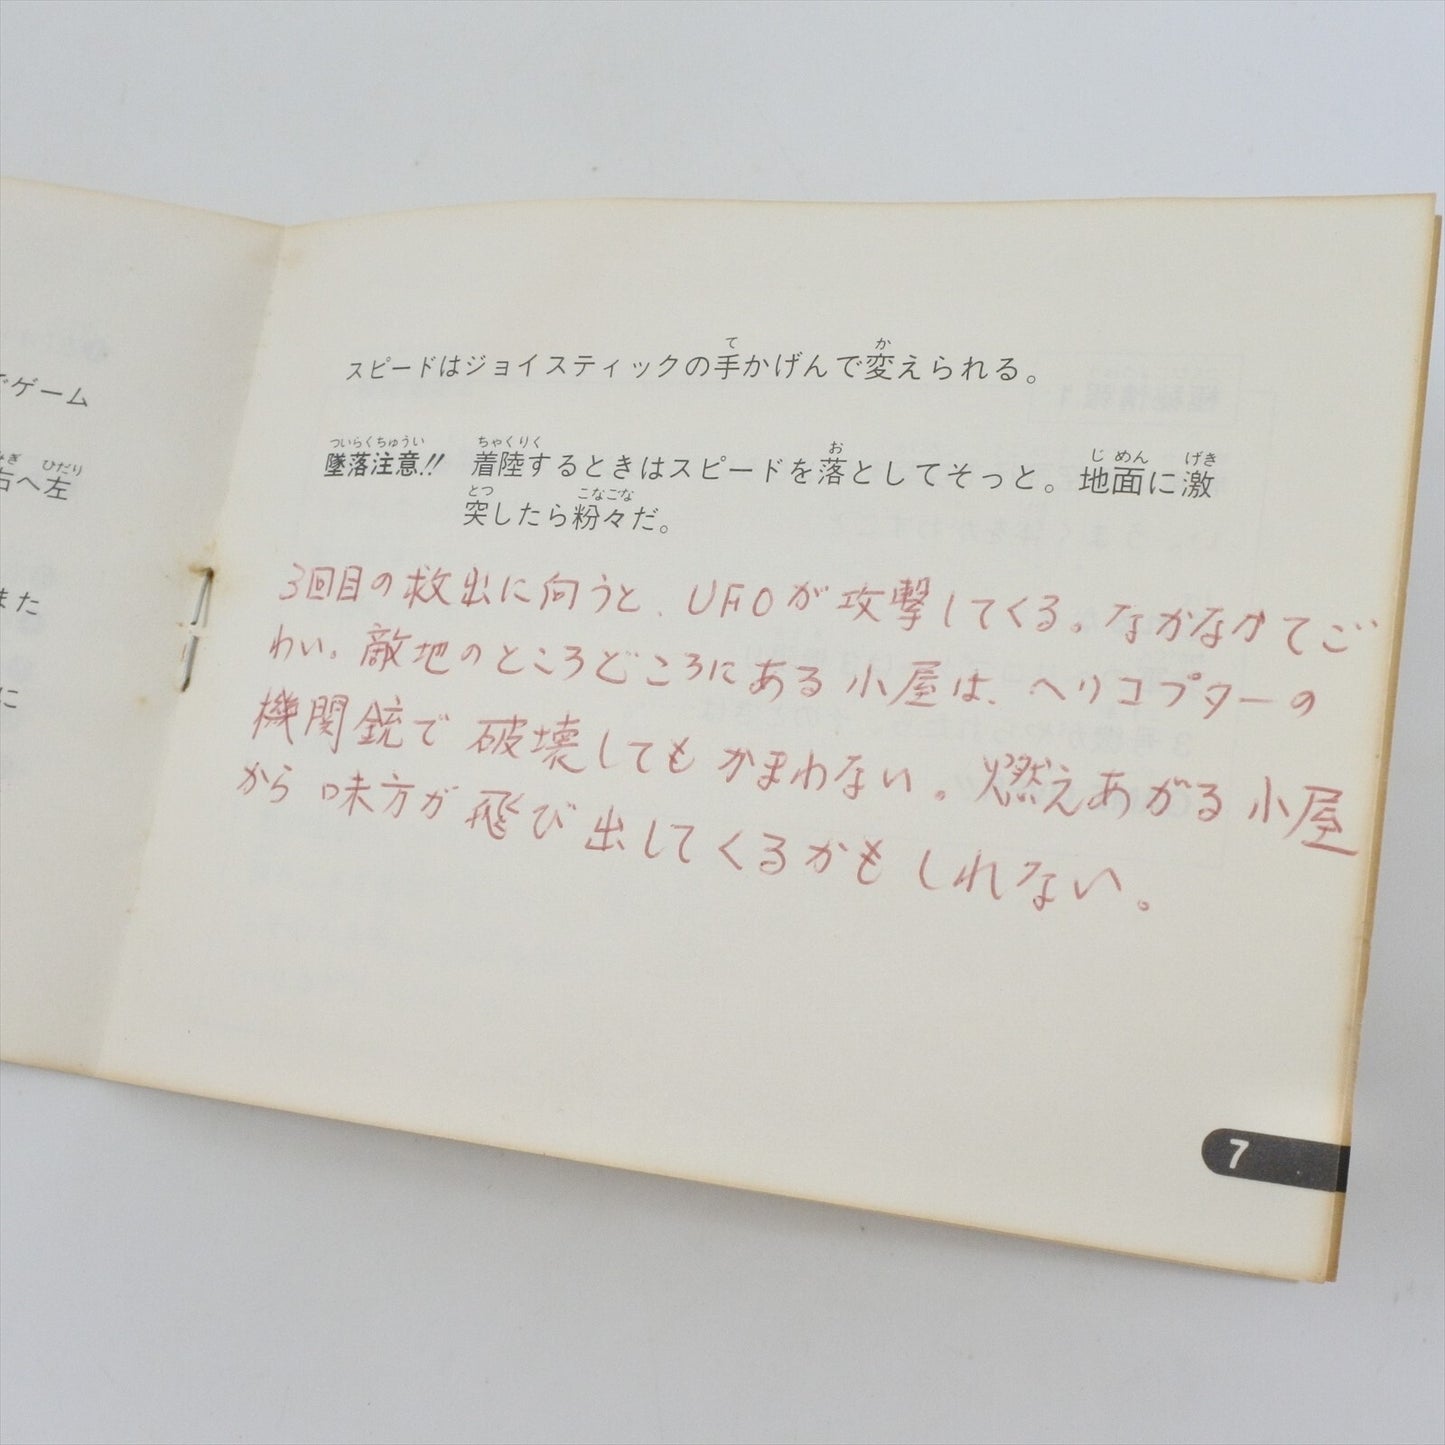 でゲーム
右へ左
みぎ ひだり
また
に
スピードはジョイスティックの手かげんで変えられる。
て か
墜落注意!! 着陸するときはスピードを落としてそっと。地面に激
ついらくちゅうい ちゃくりく お じめん げき
突したら粉々だ。
とつ こなごな
3回目の救出に向うと、UFOが攻撃してくる。なかなかてご
わい。敵地のところどころにある小屋は、ヘリコプターの
機関銃で破壊してもかまわない。燃えあがる小屋
から味方が飛び出してくるかもしれない。
7